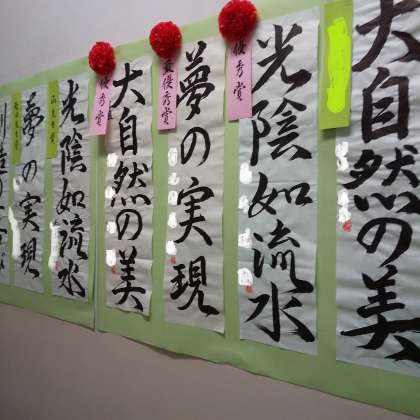 大自然の美
優秀賞
光陰如流水
最優秀賞
夢の実現
優秀賞
大自然の美
光陰如流水
夢の実現